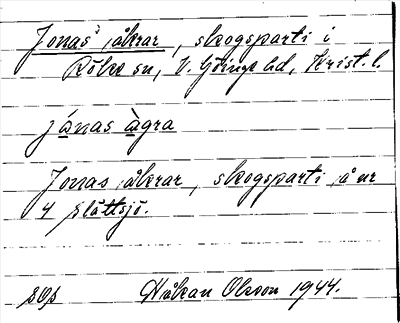 Jonas' åkrar, skogsparti i
Röke sn, V. Göinge hd, Krist. l.
jónas àgra
Jonas åkrar, skogsparti, å nr
4 Slättsjö.
Håkan Olsson 1944.